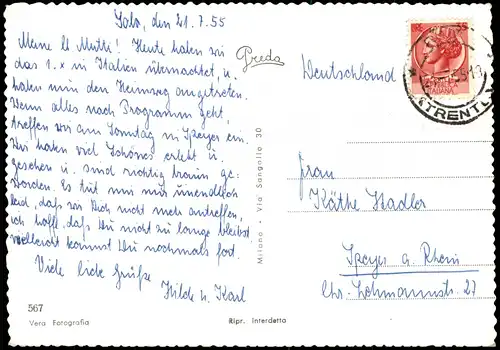 Salo, den 21.7.55
Meine lb Mutti! Heute haben wir
das 1. x in Italien übernachtet, u.
haben nun den Heimweg angetreten.
Wenn alles nach Programm geht,
treffen wir am Sonntag in Speyer ein.
Wir haben viel Schönes erlebt u.
gesehen u. sind richtig braun ge-
worden. Es tut mir nur unendlich
leid, daß wir Dich nicht mehr antreffen,
ich hoff, daß Du nicht zu lange bleibst
vielleicht kommst Du nochmals fort.
Viele liebe Grüße
Hilde u. Karl
567
Vera Fotografia
Preda
Milano - Via Sangallo 30
Ripr. interdetta
ITALIANA
(TRENT
Deutschland
Frau
Käthe Stadler
Speyer a. Rhein
Chr. Lehmannstr. 27